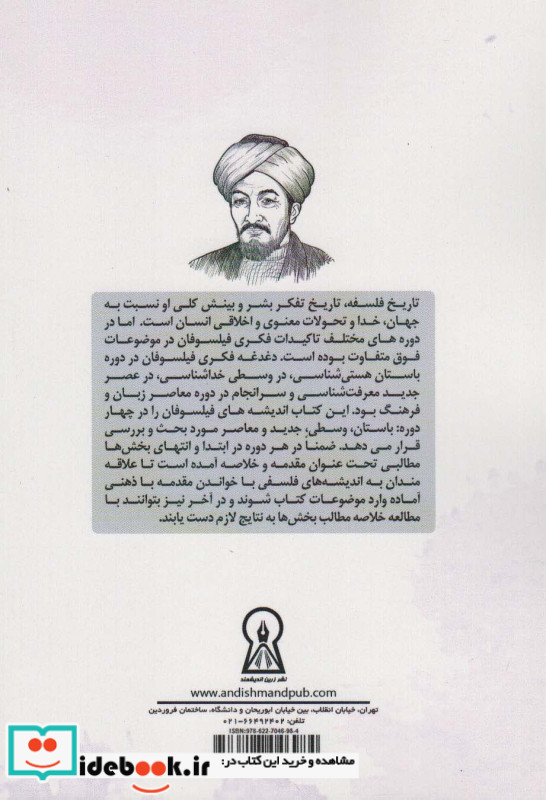 تاریخ فلسفه، تاریخ تفکر بشر و بینش کلی او نسبت به
جهان، خدا و تحولات معنوی و اخلاقی انسان است. اما در
دوره های مختلف تاکیدات فکری فیلسوفان در موضوعات
فوق متفاوت بوده است. دغدغه فکری فیلسوفان در دوره
باستان هستی‌شناسی، در وسطی خداشناسی، در عصر
جدید معرفت‌شناسی و سرانجام در دوره معاصر زبان و
فرهنگ بود. این کتاب اندیشه های فیلسوفان را در چهار
دوره: باستان، وسطی، جدید و معاصر مورد بحث و بررسی
قرار می دهد. ضمناً در هر دوره در ابتدا و انتهای بخش‌ها
مطالبی تحت عنوان مقدمه و خلاصه آمده است تا علاقه
مندان به اندیشه‌های فلسفی با خواندن مقدمه با ذهنی
آماده وارد موضوعات کتاب شوند و در آخر نیز بتوانند با
مطالعه خلاصه مطالب بخش‌ها به نتایج لازم دست یابند.
نشر زرین اندیشمند
www.andishmandpub.com
تهران، خیابان انقلاب، بین خیابان ابوریحان و دانشگاه، ساختمان فروردین
تلفن: ۶۶۴۹۲۴۰۲-۰۲۱
ISBN: 978-622-7046-98-4
مشاهده و خرید این کتاب در:
idebook.ir